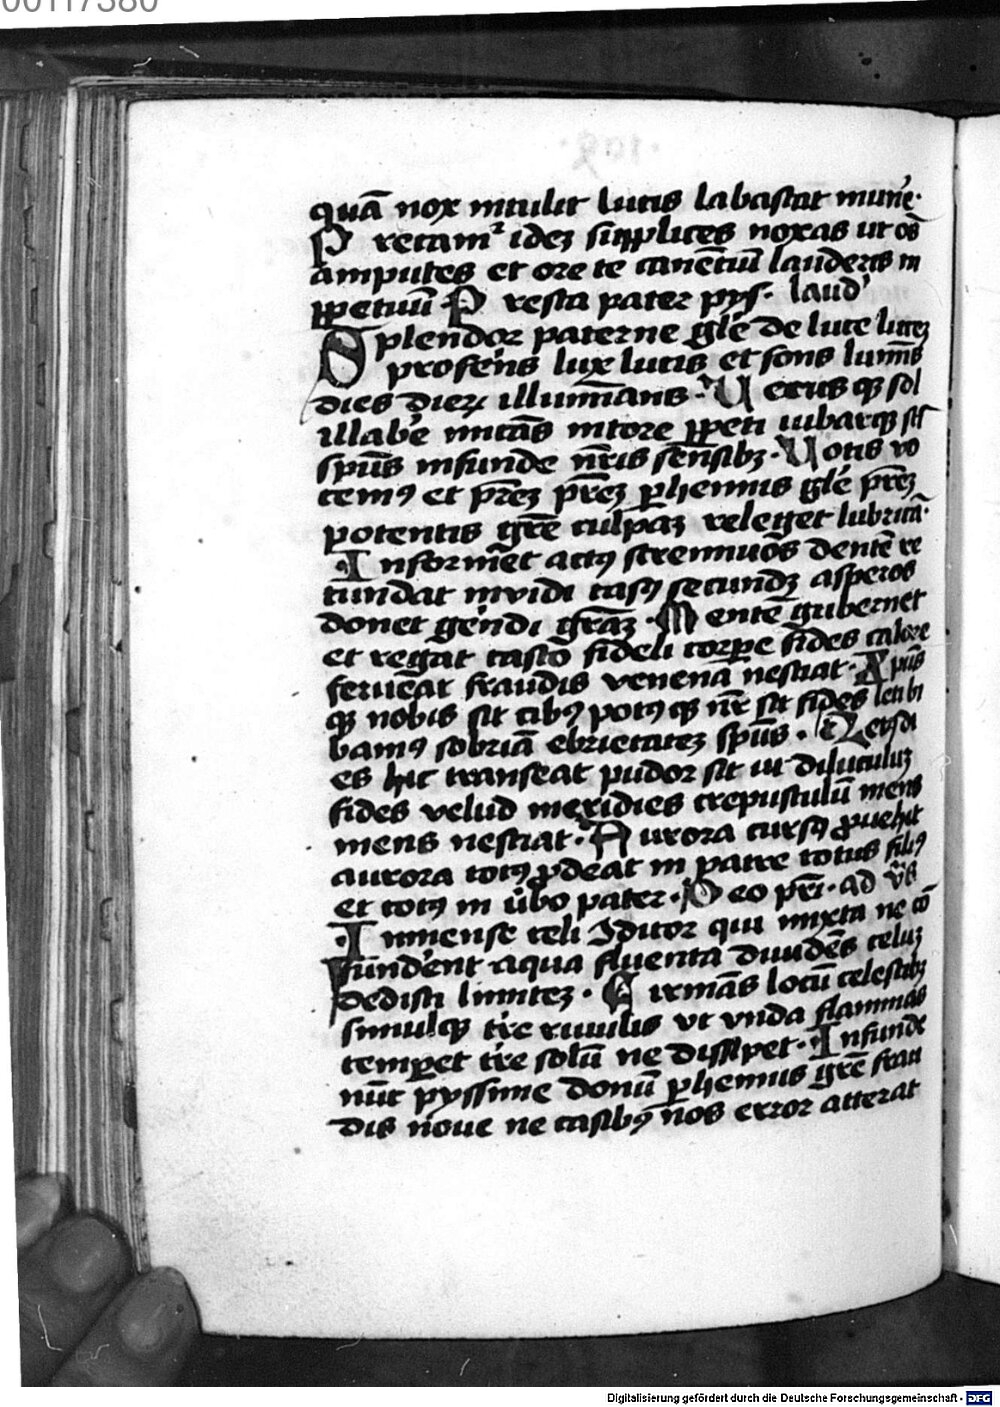 00117380
quā nox intulit lucis labascat mune᷒.
Precam᷒ idez supplices noxas ut oēs
amputes et ore te canētiū lauderis in
ꝑpetuū Presta pater pys. laud᷒
Splendor paterne glē de luce lucez
proferēns lux lucis et fons lumīs
dies dieꝝ illumīans. Verus qꝫ sol
illabere micās nitore ꝑpeti iubarqꝫ scī
spūs infunde nr̄is sensibꝫ. Votis vo
cemꝰ et pr̄ez pr̄ez ꝑhennis glē pr̄ez
potentis grē culpaz releget lubricā.
Informet actꝰ strennuōs dentē re
tundat invidi casꝰ secundꝫ asperos
donet gerendi grāz. Mentē gubernet
et regat casto fideli corpe fides calore
ferueat fraudis venenā nesciat. Xpūs
qꝫ nobis sit cibꝰ potꝰ qꝫ nr̄ sit fides leti bi
bamꝰ sobriā ebrietatez spūs. Letꝰ di
es hic transeat pudor sit ut diluculuz
fides velud meridies crepusculū mens
mens nesciat. Aurora cursꝰ ꝓuehit
aurora totꝰ ꝓdeat in patre totus filiꝰ
et totꝰ in ūbo pater. Deo pr̄i. ad v̄s
Inmense celi ꝯditor qui mixta ne cō
fundērent aqua fluenta diuidēs celuz
dedisti limitez. Firmās locū celestibꝫ
simulqꝫ tr̄e riuulis vt vnda flammas
temperet tr̄e solū ne dissipet. Infunde
nūc pyssime donū ꝑhennis grē frau
dis noue ne casibꝰ nos error atterat
Digitalisierung gefördert durch die Deutsche Forschungsgemeinschaft - DFG